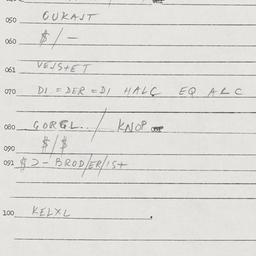 050 OUKAST
060 $ / —
061 VEJS+ET
070 DI = DER = DI HALC EQ ALC
080 GORGL.. / KNOP
090 $ / $
091 $ 2 - BROD/ER/IS+
100 KELXL .